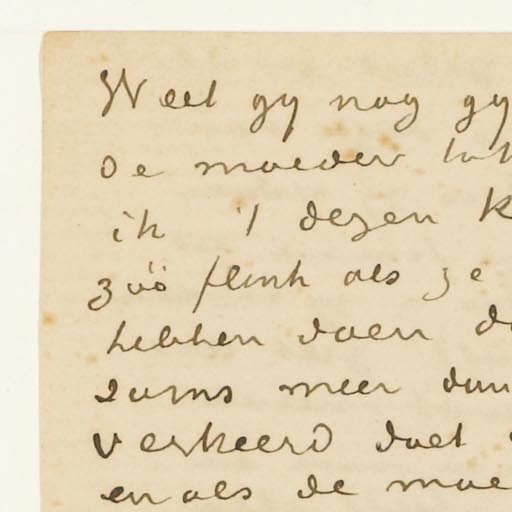 Weet gy nog gy
de moeder
ik 't dezen
zóó flink als ze
hebben doen
soms meer dan
verkeerd doet
en als de moe